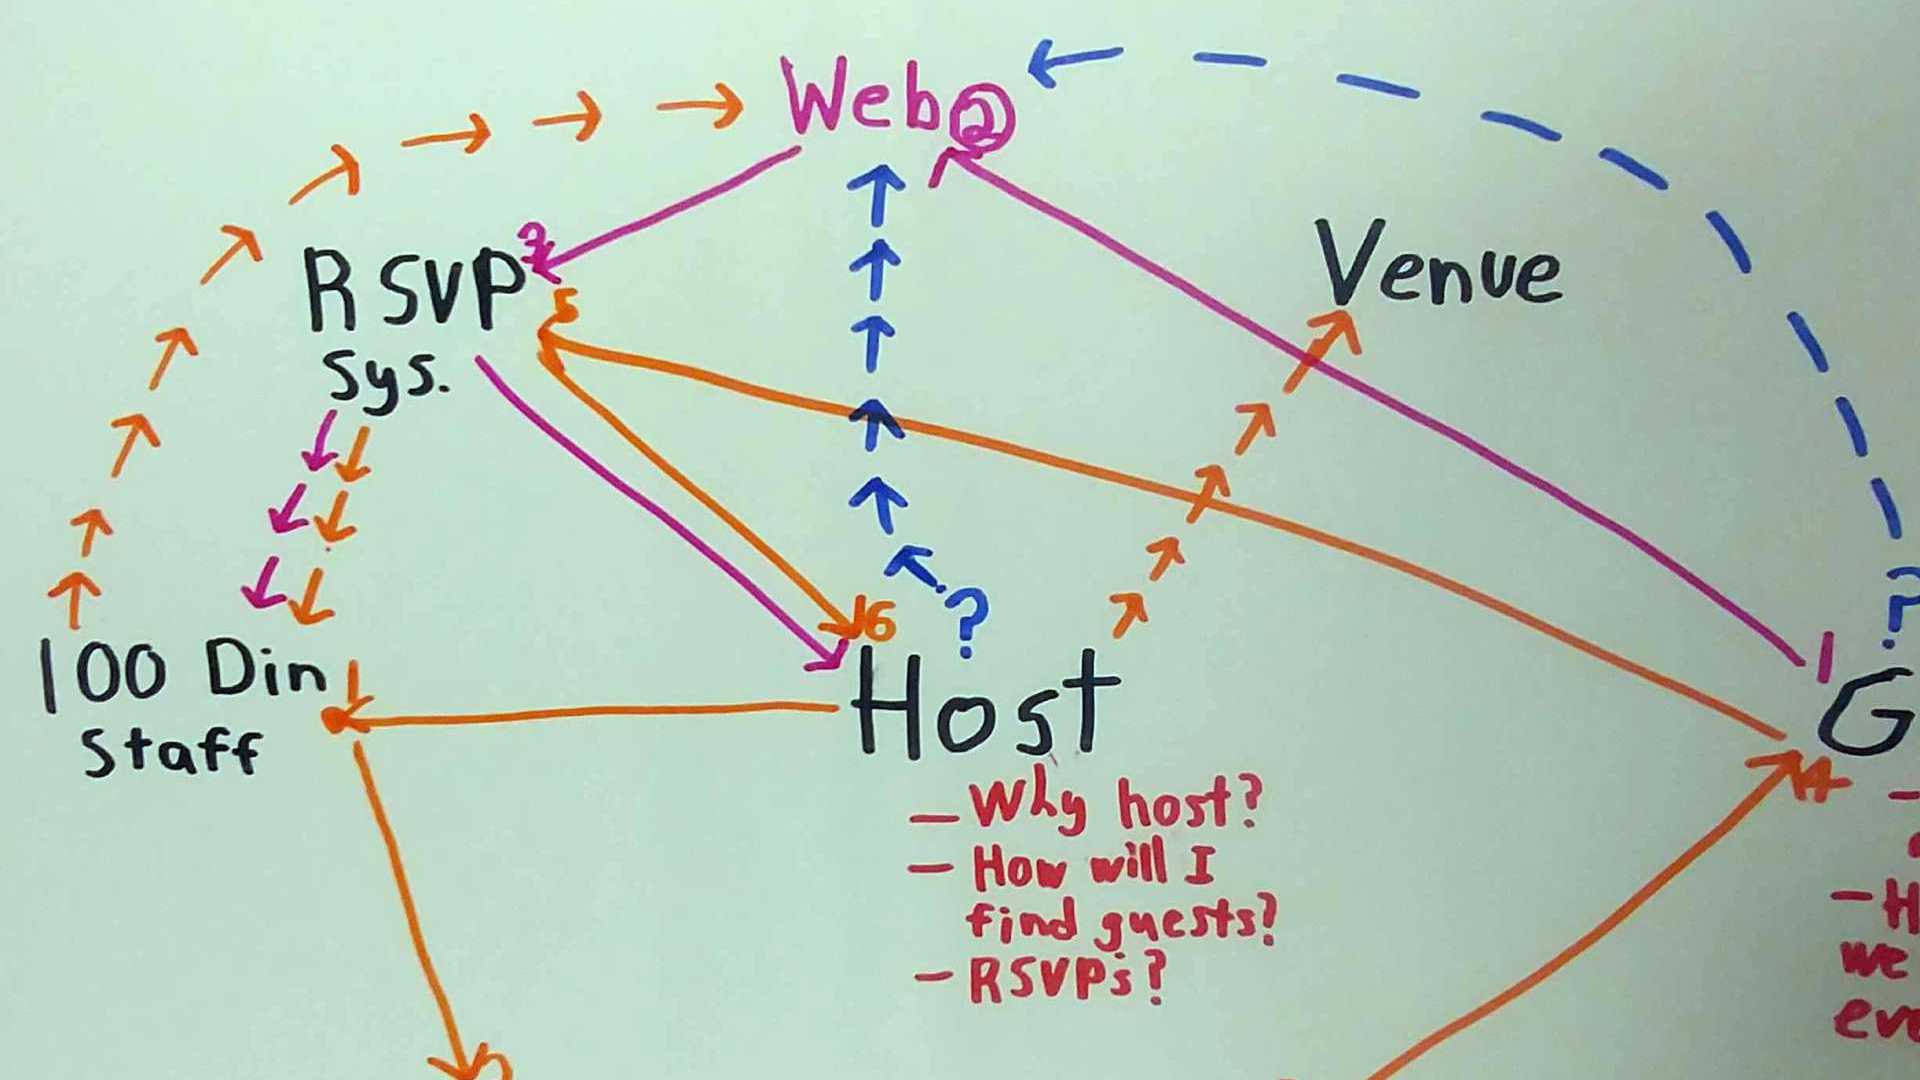 Web 2
RSVP
Sys.
5
Venue
6
?
?
1
100 Din 1
Staff
Host
G
4
- Why host?
- How will I
find guests?
- RSVP's?
- H
we
eve